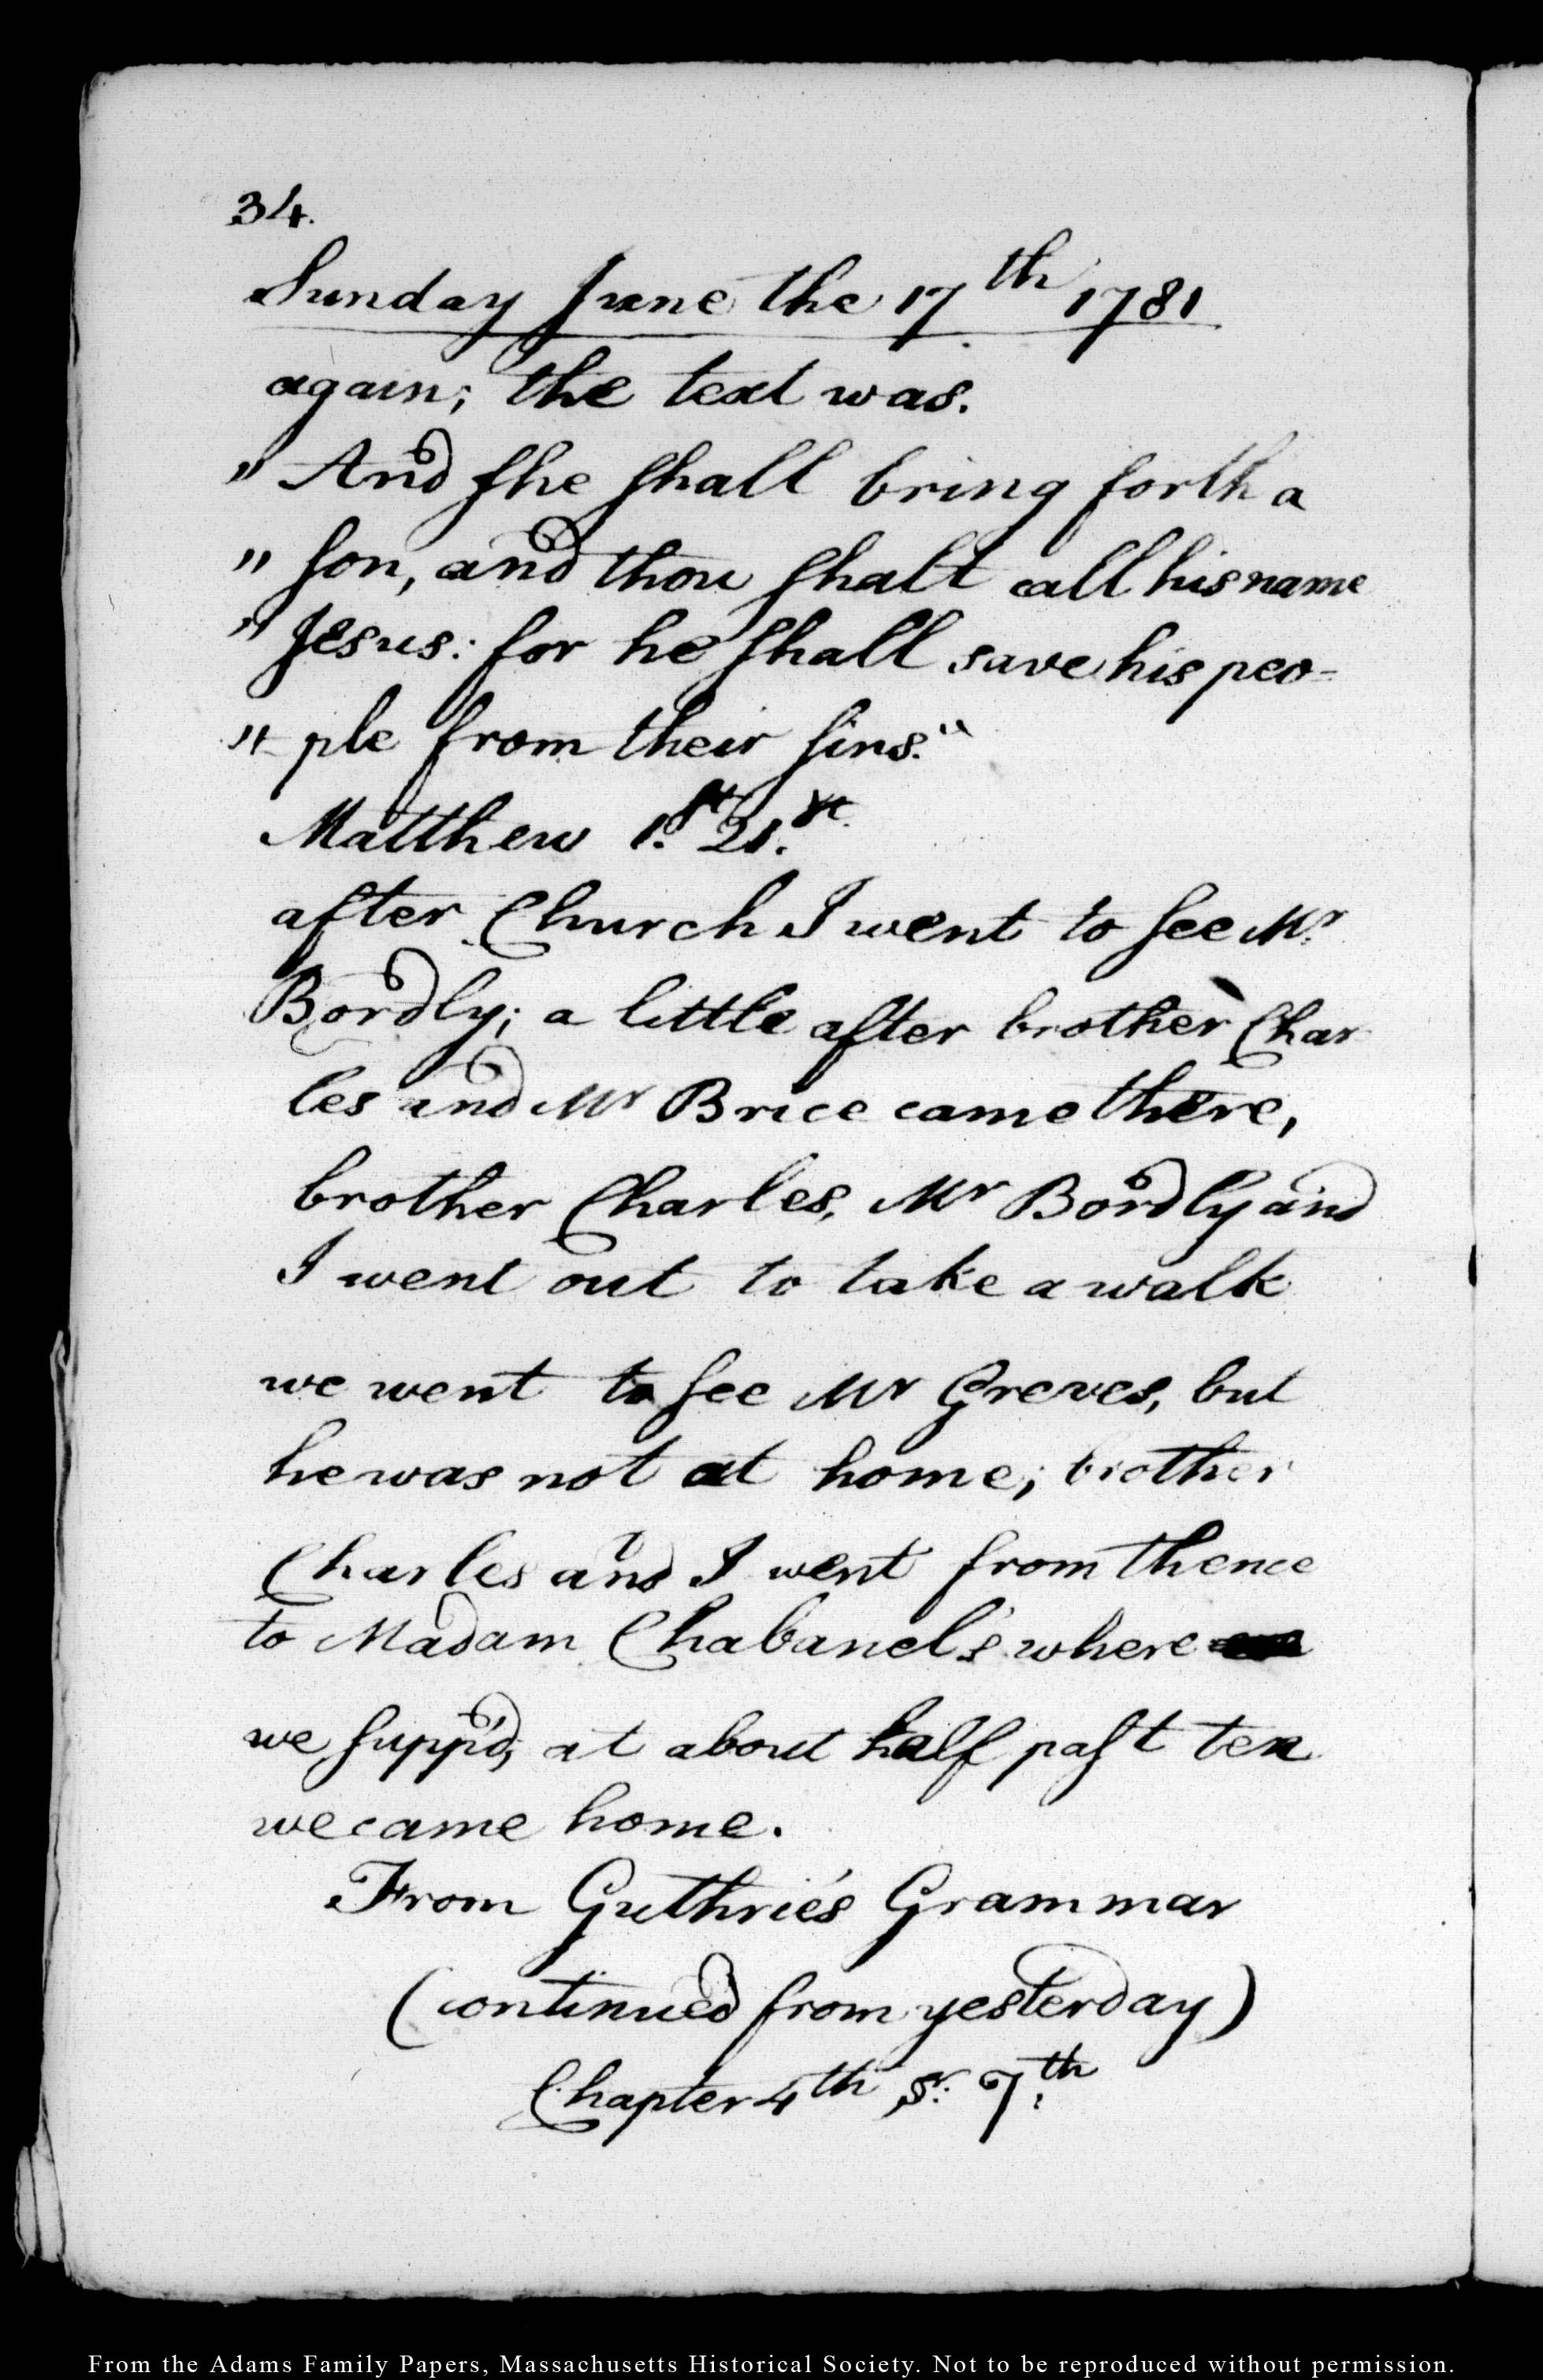 34.
Sunday June the 17th 1781
again; the text was.
" And she shall bring forth a
" son, and thou shalt call his name
" Jesus: for he shall save his peo=
" ple from their sins."
Matthew 1.st 21.st
after Church I went to see Mr.
Bordly; a little after brother Char
les and Mr Brice came there,
brother Charles, Mr Bordly and
I went out to take a walk
we went to see Mr Greves, but
he was not at home; brother
Charles and I went from thence
to Madam Chabanel's where
we supp'd, at about half past ten
we came home.
From Guthrie's Grammar
(continued from yesterday)
Chapter 4th Sr. 7th
From the Adams Family Papers, Massachusetts Historical Society. Not to be reproduced without permission.